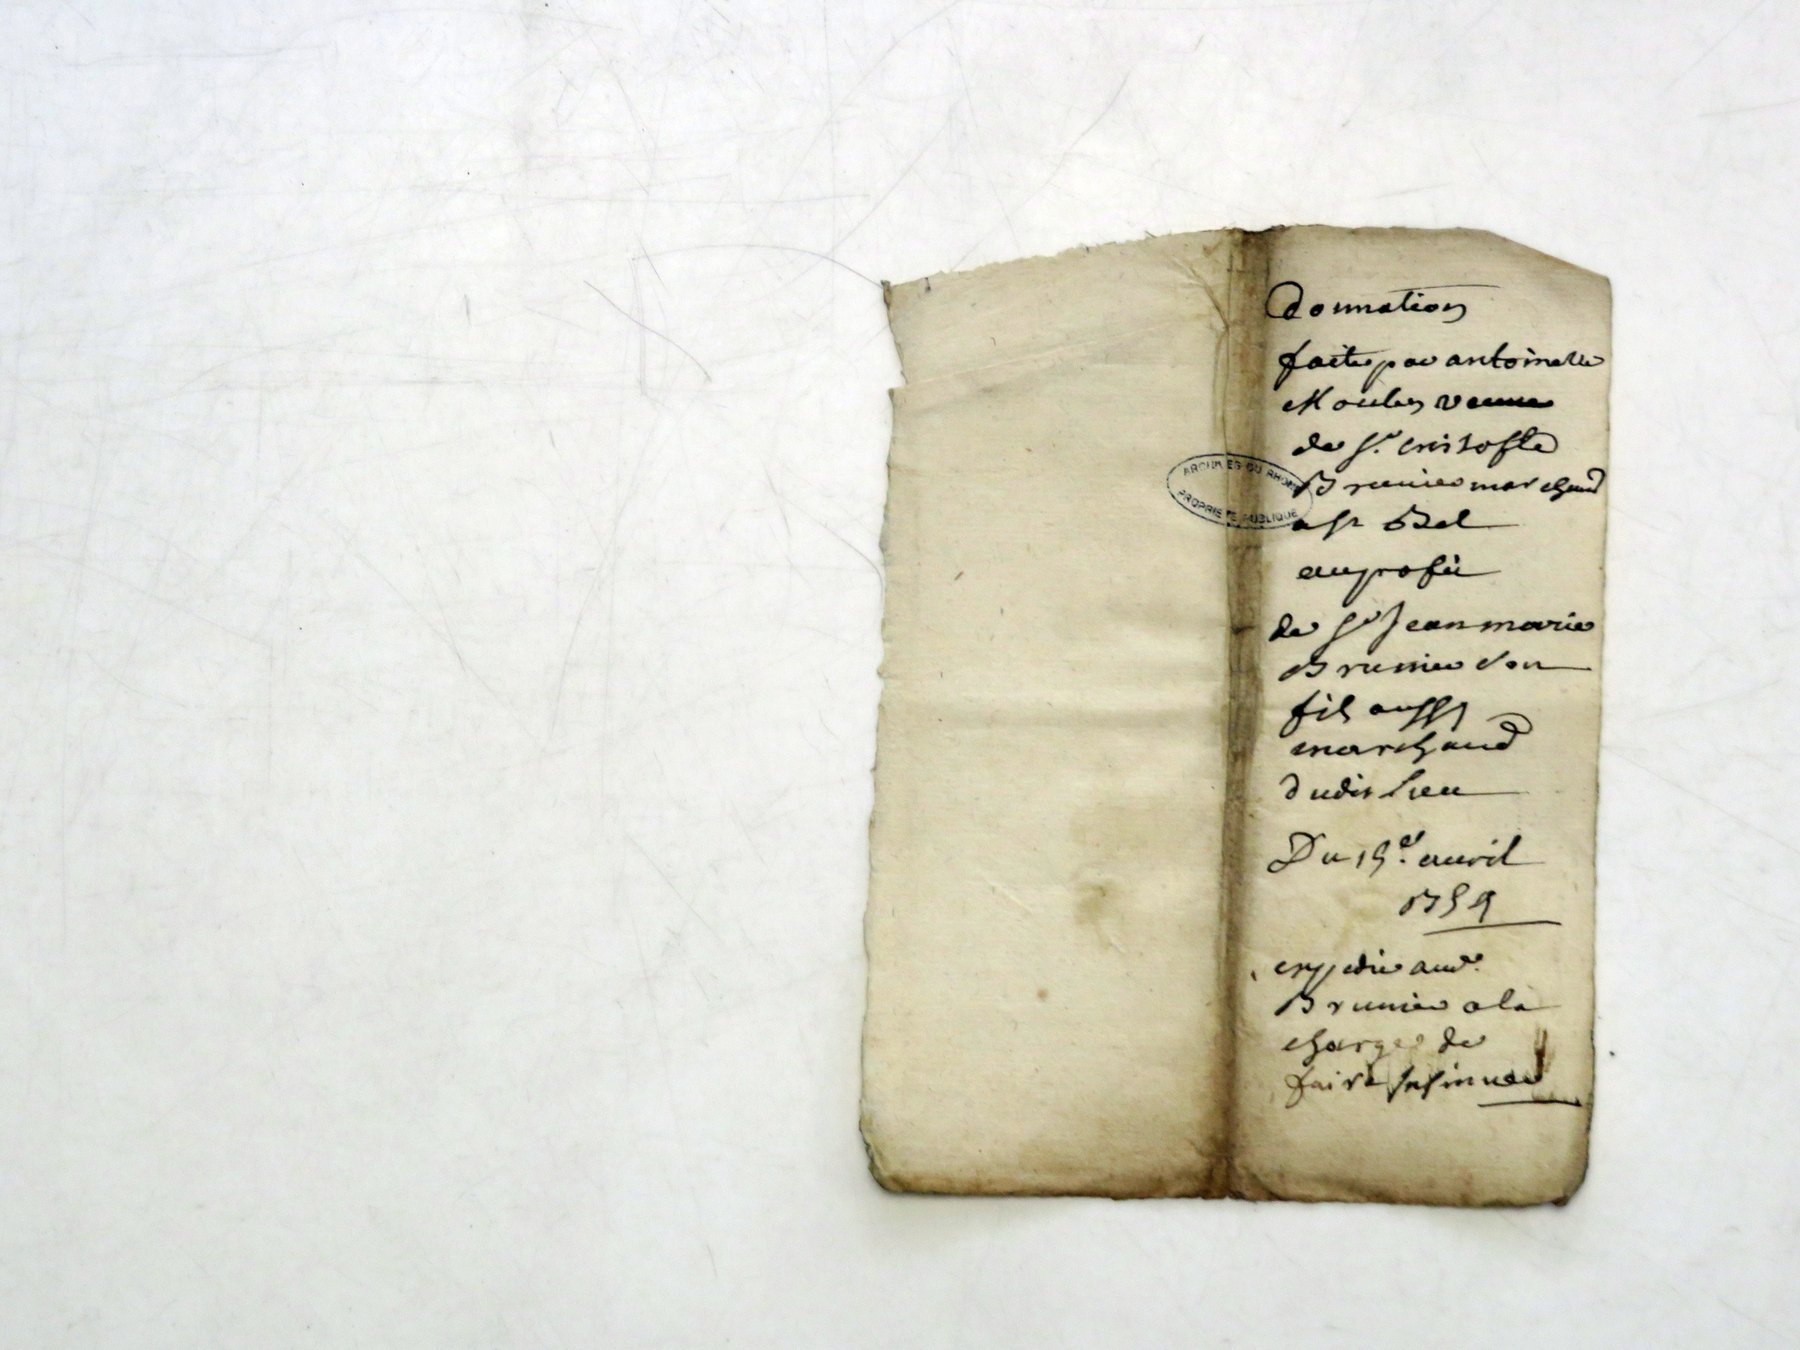 donnation
faite par antoinette
Moulin veuve
de Sr. cristofle
Brunier marchand
a St Bel
au profit
de Sr Jean marie
Brunier son
fils aussy
marchand
dudit lieu
Du 15e. avril
1759
expedié aud.
Brunier a la
charge de
faire insinuer
ARCHIVES DU RHONE
PROPRIETE PUBLIQUE